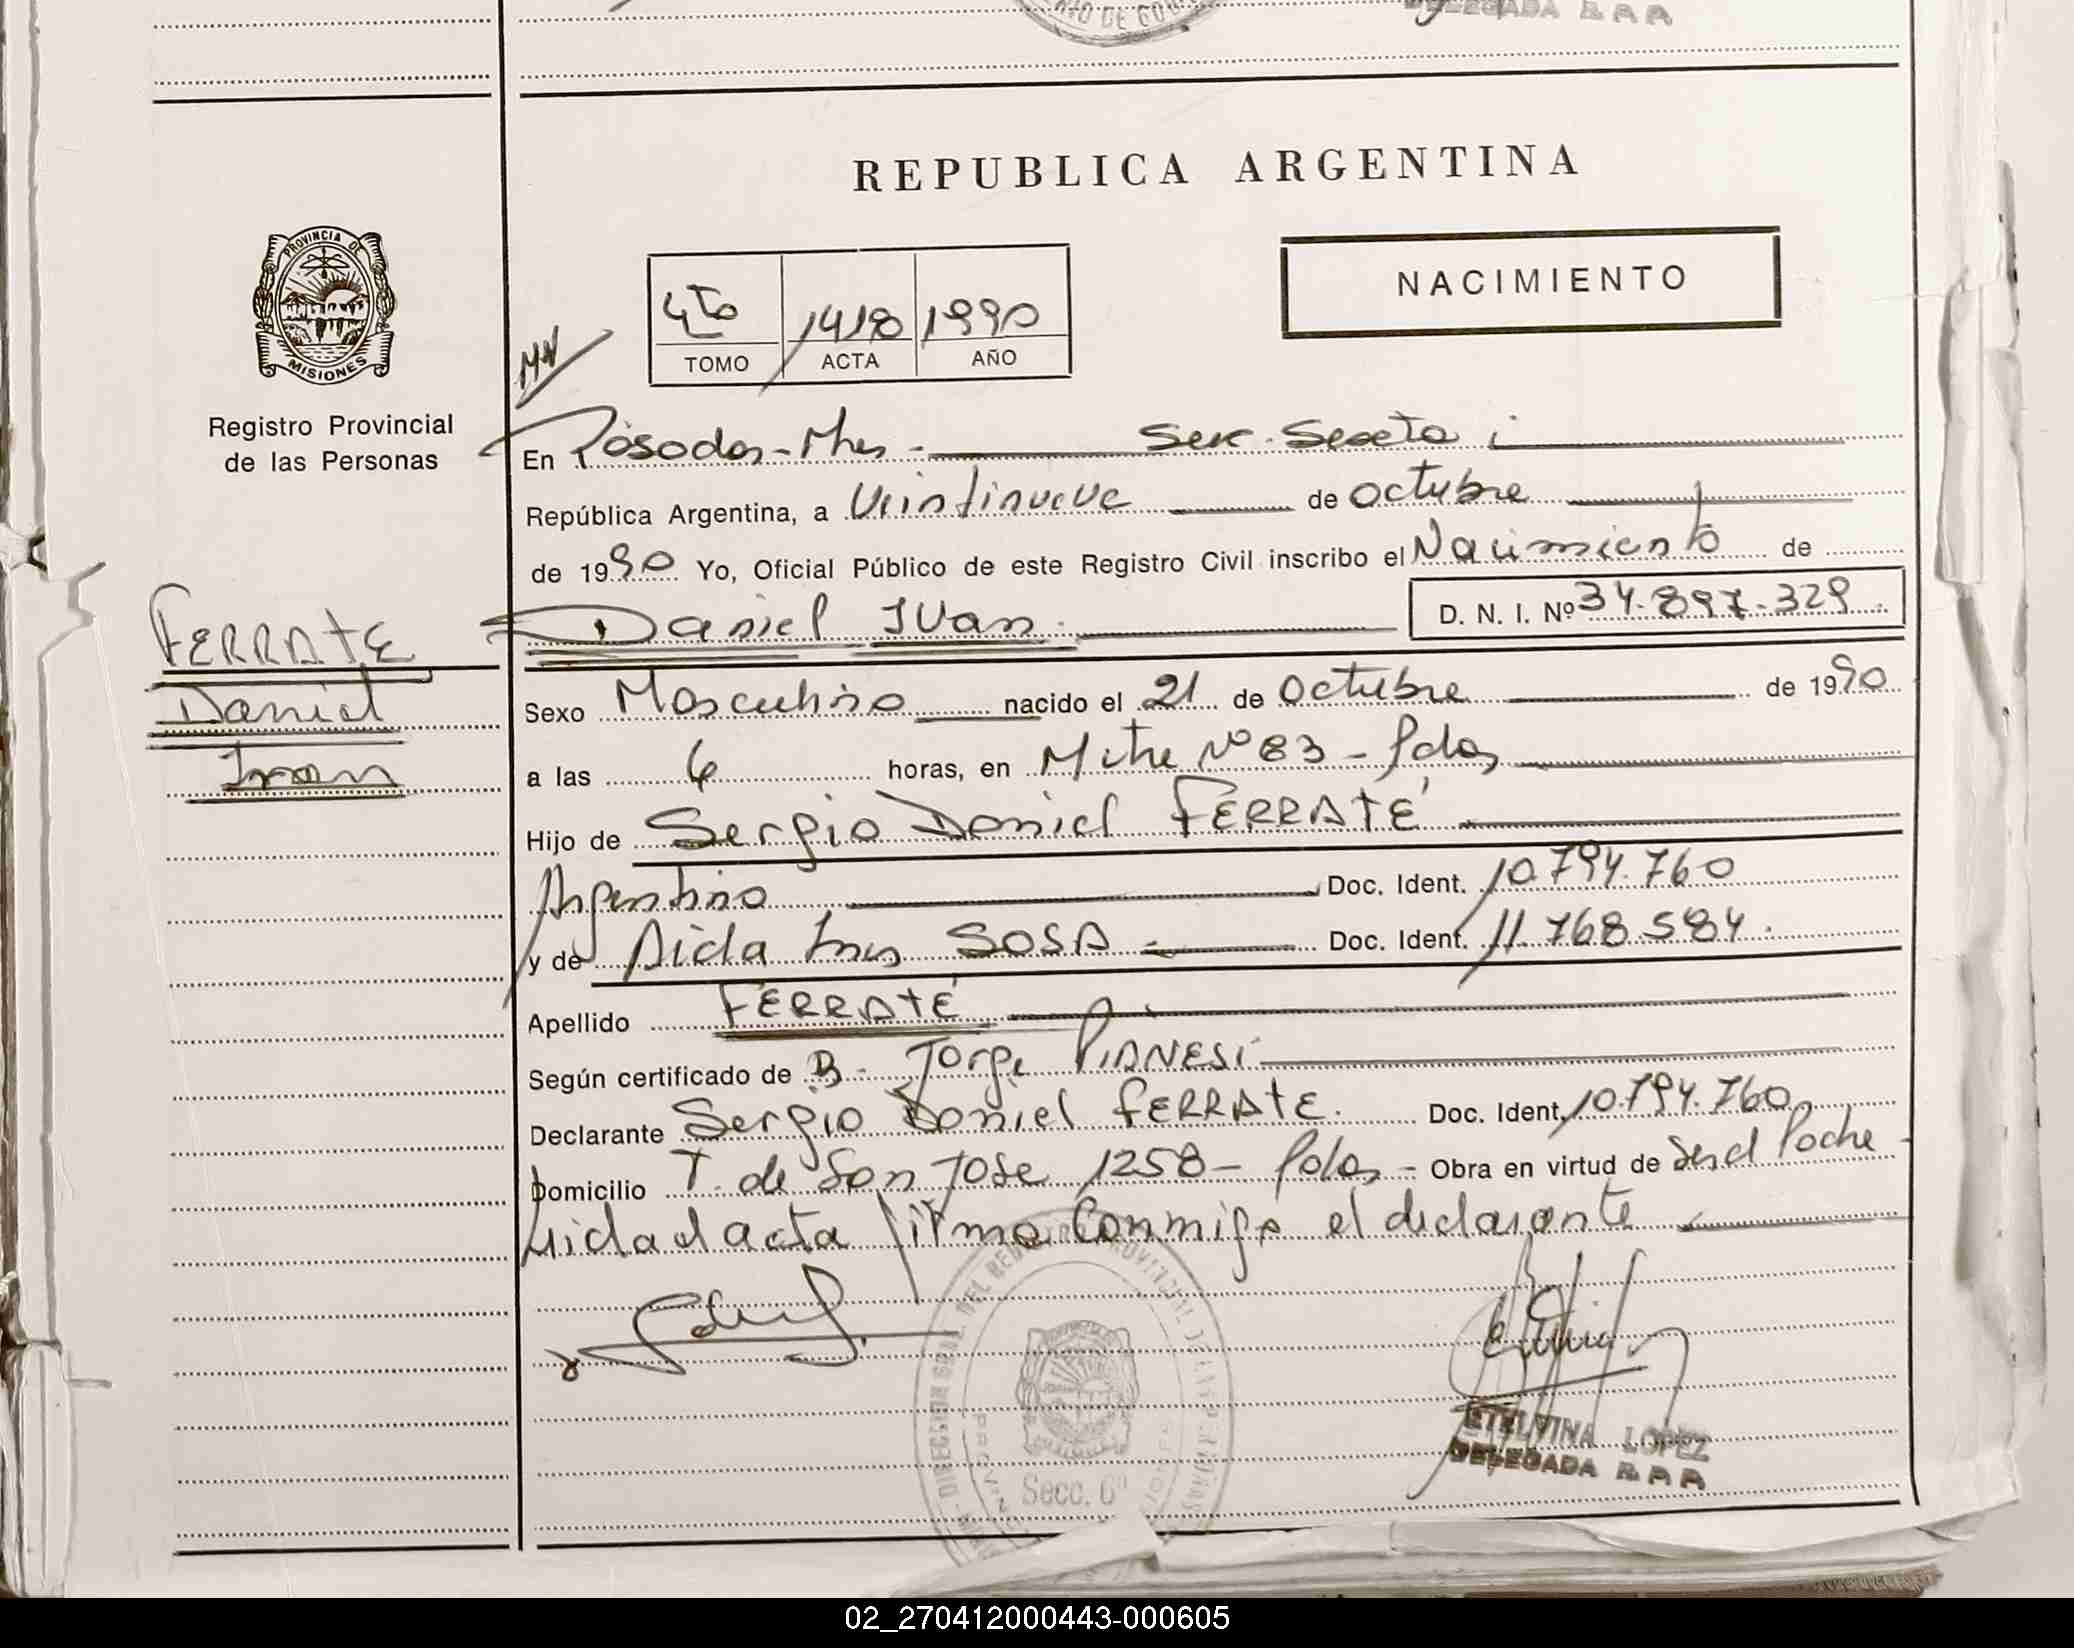 DELEGADA R P P
REPUBLICA ARGENTINA
PROVINCIA DE
MISIONES
Registro Provincial
de las Personas
4to 1418 1990
TOMO ACTA AÑO
NACIMIENTO
En Posadas - Mnes - Secc. Sexta
República Argentina, a Veintinueve de octubre
de 1990 Yo, Oficial Público de este Registro Civil inscribo el Nacimiento de
Daniel Ivan. D. N. I. Nº 34.897.329
FERRATE
Daniel
Ivan
Sexo Masculino nacido el 21 de Octubre de 1990
a las 6 horas, en Mitre Nº 83 - Pdas
Hijo de Sergio Daniel FERRATÉ
Argentino Doc. Ident. 10.794.760
y de Aida Ines SOSA - Doc. Ident. 11.768.584.
Apellido FERRATÉ
Según certificado de Jorge PIANESI
Declarante Sergio Daniel FERRATE. Doc. Ident. 10.794.760
Domicilio T. de San Jose 1258 - Pdas - Obra en virtud de ser el Padre
Leida el acta firma conmigo el declarante
DIRECCION GRAL. DEL REGISTRO PROVINCIAL DE LAS PERSONAS
Secc. 6ª
ETELVINA LOPEZ
DELEGADA R P P
02_270412000443-000605